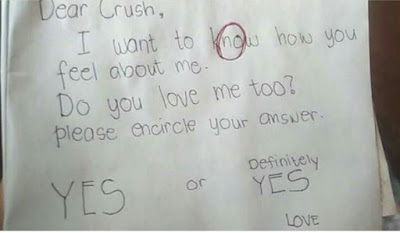 Dear Crush,
I want to know how you
feel about me.
Do you love me too?
please encircle your answer.
Definitely
YES or YES
LOVE